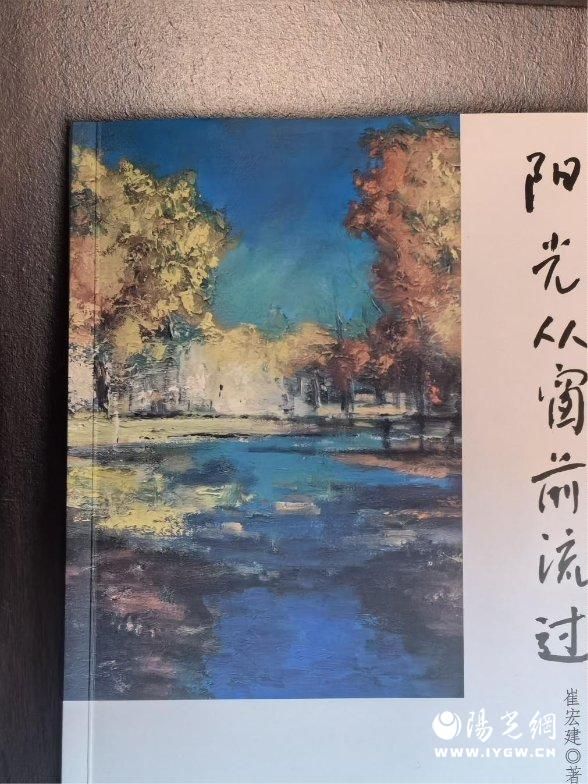 阳光从窗前流过
崔宏建◎著
陽光網
WWW.IYGW.CN